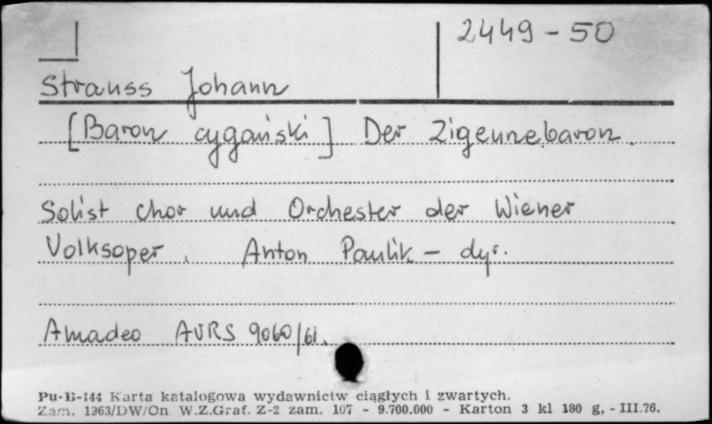 2449-50
Strauss Johann
[Baron cygański] Der Zigeunebaron.
Solist chor und Orchester der Wiener
Volksoper. Anton Paulik - dyr.
Amadeo AVRS 9060/61.
Pu-B-144 Karta katalogowa wydawnictw ciągłych i zwartych.
Zam. 1363/DW/On W.Z.Graf. Z-2 zam. 107 - 9.700.000 - Karton 3 kl 180 g, - III.76.